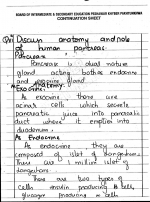 BOARD OF INTERMEDIATE & SECONDARY EDUCATION PESHAWAR KHYBER PAKHTUNKHWA
CONTINUATION SHEET
Discuss anatomy and role
of human pancreas.
Pancreas
Pancreas is dual nature
gland acting bothas endocrine
and exocrine gland.
As Exocrine:
As exocrine there are
acinar cells which secrete
pancreatic juice into pancreatic
duct where it empties into
duodenum.
As Endocrine
As endocrine they are
composed of islet of langerhans.
There are 1 million islet of
langerhans.
There are two types of
cells insulin producing β cells,
glucagon producing α cells